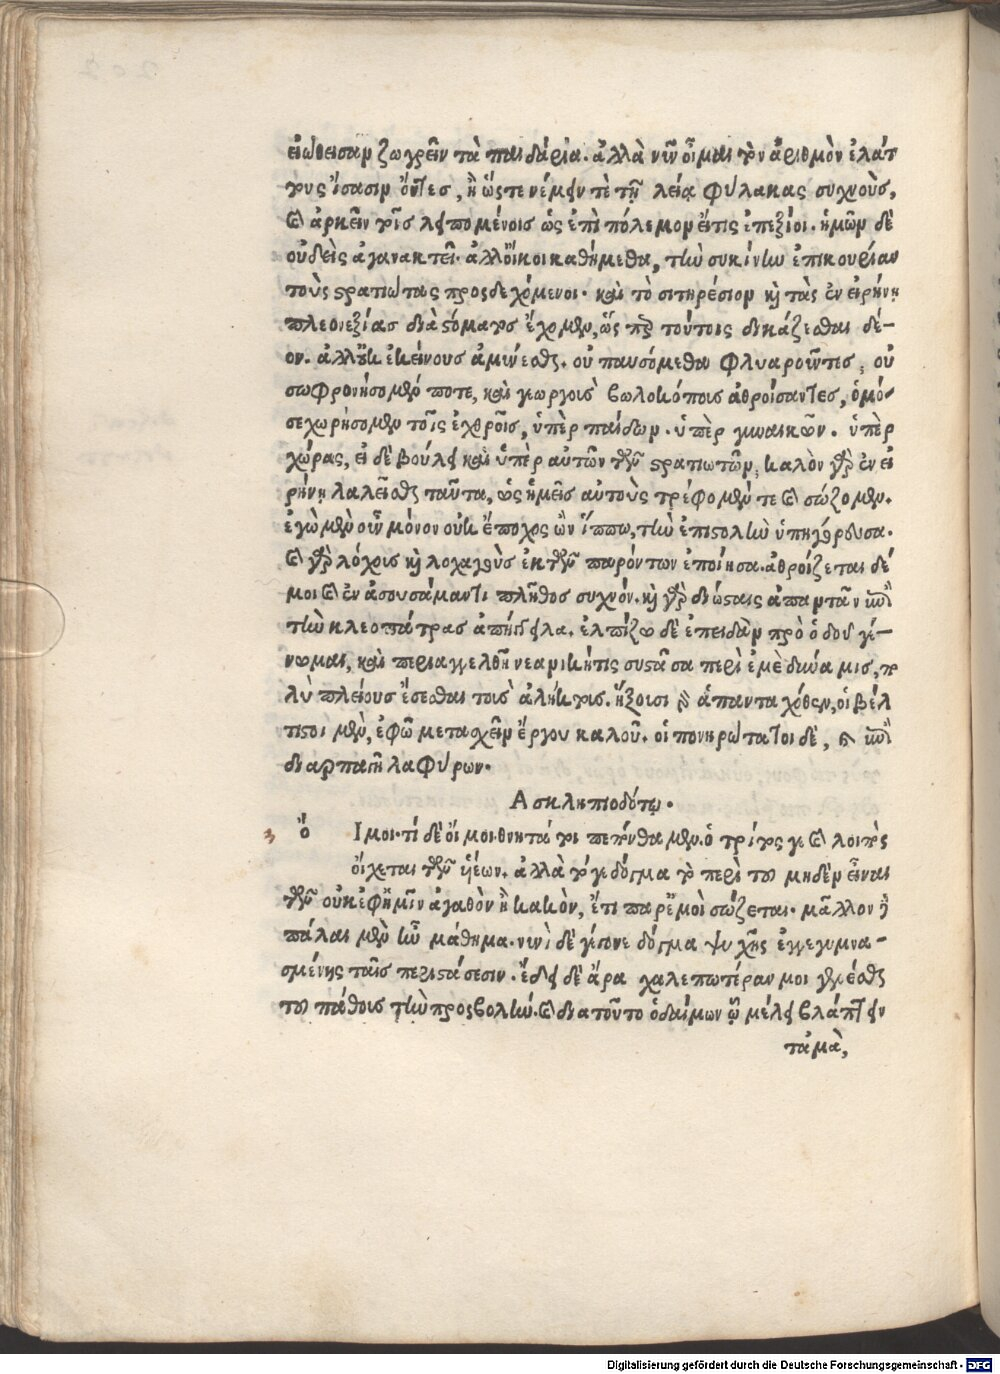 εἰώθεισαν ζωγρεῖν τὰ παιδάρια. ἀλλὰ νῦν οἶμαι τὸν ἀριθμὸν ἐλάτ
τους ἴσασιν ὄντες, ἢ ὥστε νέμειν τὲ τῇ λείᾳ φύλακας συχνοὺς,
καὶ ἀρκεῖν τοῖς λειπομένοις ὡς ἐπὶ πόλεμον εἴτις ἐπεξίοι. ἡμῶν δὲ
οὐδεὶς ἀγανακτεῖ. ἀλλοἴκοι καθήμεθα, τὴν συκίνην ἐπικουρίαν
τοὺς στρατιώτας προσδεχόμενοι. καὶ τὸ σιτηρέσιον καὶ τὰς ἐν εἰρήνῃ
πλεονεξίας διὰ στόματος ἔχομεν, ὥς περ τούτοις δικάζεσθαι δέ-
ον. ἀλλοὐκ ἐκείνους ἀμύνεσθαι. οὐ παυσόμεθα φλυαροῦντες, οὐ
σωφρονήσομέν ποτε, καὶ γεωργοὺς βωλοκόπους ἀθροίσαντες, ὁμό-
σε χωρήσομεν τοῖς ἐχθροῖς, ὑπὲρ παίδων. ὑπὲρ γυναικῶν. ὑπὲρ
χώρας, εἰ δὲ βούλει καὶ ὑπὲρ αὐτῶν τῶν στρατιωτῶν, καλὸν γὰρ ἐν εἰ
ρήνῃ λαλεῖσθαι ταῦτα, ὡς ἡμεῖς αὐτοὺς τρέφομέν τε καὶ σώζομεν.
ἐγὼ μὲν οὖν μόνον οὐκ ἔποχος ὢν ἵππω, τὴν ἐπιστολὴν ὑπηγόρευσα.
καὶ γὰρ λόχους καὶ λοχαγοὺς ἐκ τῶν παρόντων ἐποίησα. ἀθροίζεται δέ
μοι καὶ ἐν ἀσουσάμαντι πλῆθος συχνόν. καὶ γὰρ διώσταις ἀπαντᾶν ἐπὶ
τὴν κλεοπάτρας ἀπήγγειλα. ἐλπίζω δὲ ἐπειδὰν πρὸ ὁδοῦ γέ-
νωμαι, καὶ περιαγγελθῇ νεανική τις συστᾶσα περὶ ἐμὲ δύναμις, πο
λὺ πλείους ἔσεσθαι τοὺς ἀκλήτους. ἥξουσι γὰρ ἁπανταχόθεν, οἱ βέλ
τιστοι μὲν, ἐφῶ μετασχεῖν ἔργου καλοῦ. οἱ πονηρότατοι δὲ, ἐπὶ
διαρπαγῇ λαφύρων.
Ἀσκληπιοδότῳ.
ὅ Ἴμοι. τί δὲ οἴμοι. θνητά τοι πεπόνθαμεν. ὁ τρίτος γε καὶ λοιπὸς
οἴχεται τῶν υἱέων. ἀλλὰ τόγε δόγμα τὸ περὶ τοῦ μηδὲν εἶναι
τῶν οὐκ ἐφ' ἡμῖν ἀγαθὸν ἢ κακὸν, ἔτι παρ' ἐμοὶ σώζεται. μᾶλλον ἢ
πάλαι μὲν ἦν μάθημα. νυνὶ δὲ γέγονε δόγμα ψυχῆς ἐγγεγυμνα-
σμένης ταῖς περιστάσεσιν. ἔδει δὲ ἄρα χαλεπωτέραν μοι γενέσθαι
τοῦ πάθους τὴν προσβολήν. καὶ διὰ τοῦτο ὁ δαίμων ᾧ μέλει βλάπτειν
τἀμὰ,